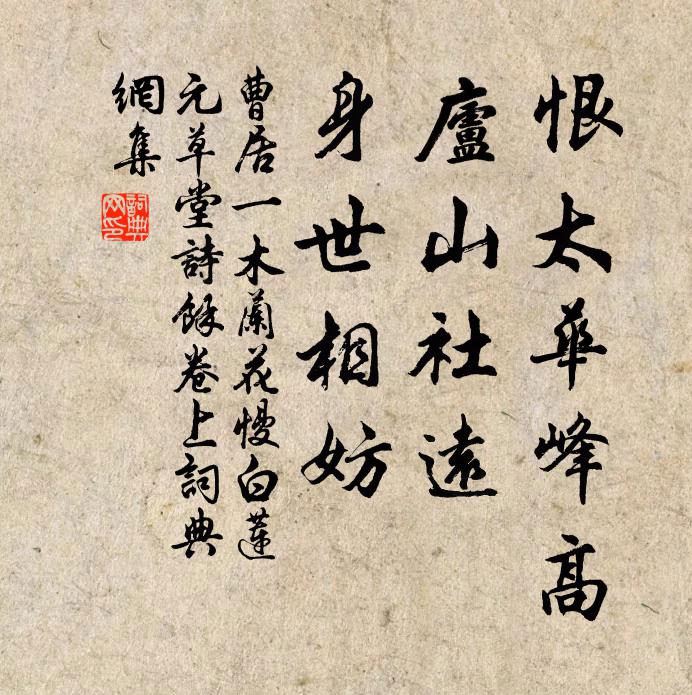 恨太華峰高
廬山社遠
身世相妨
曹居一木蘭花慢白蓮
元草堂詩餘卷上詞典
網集
詞典
网印